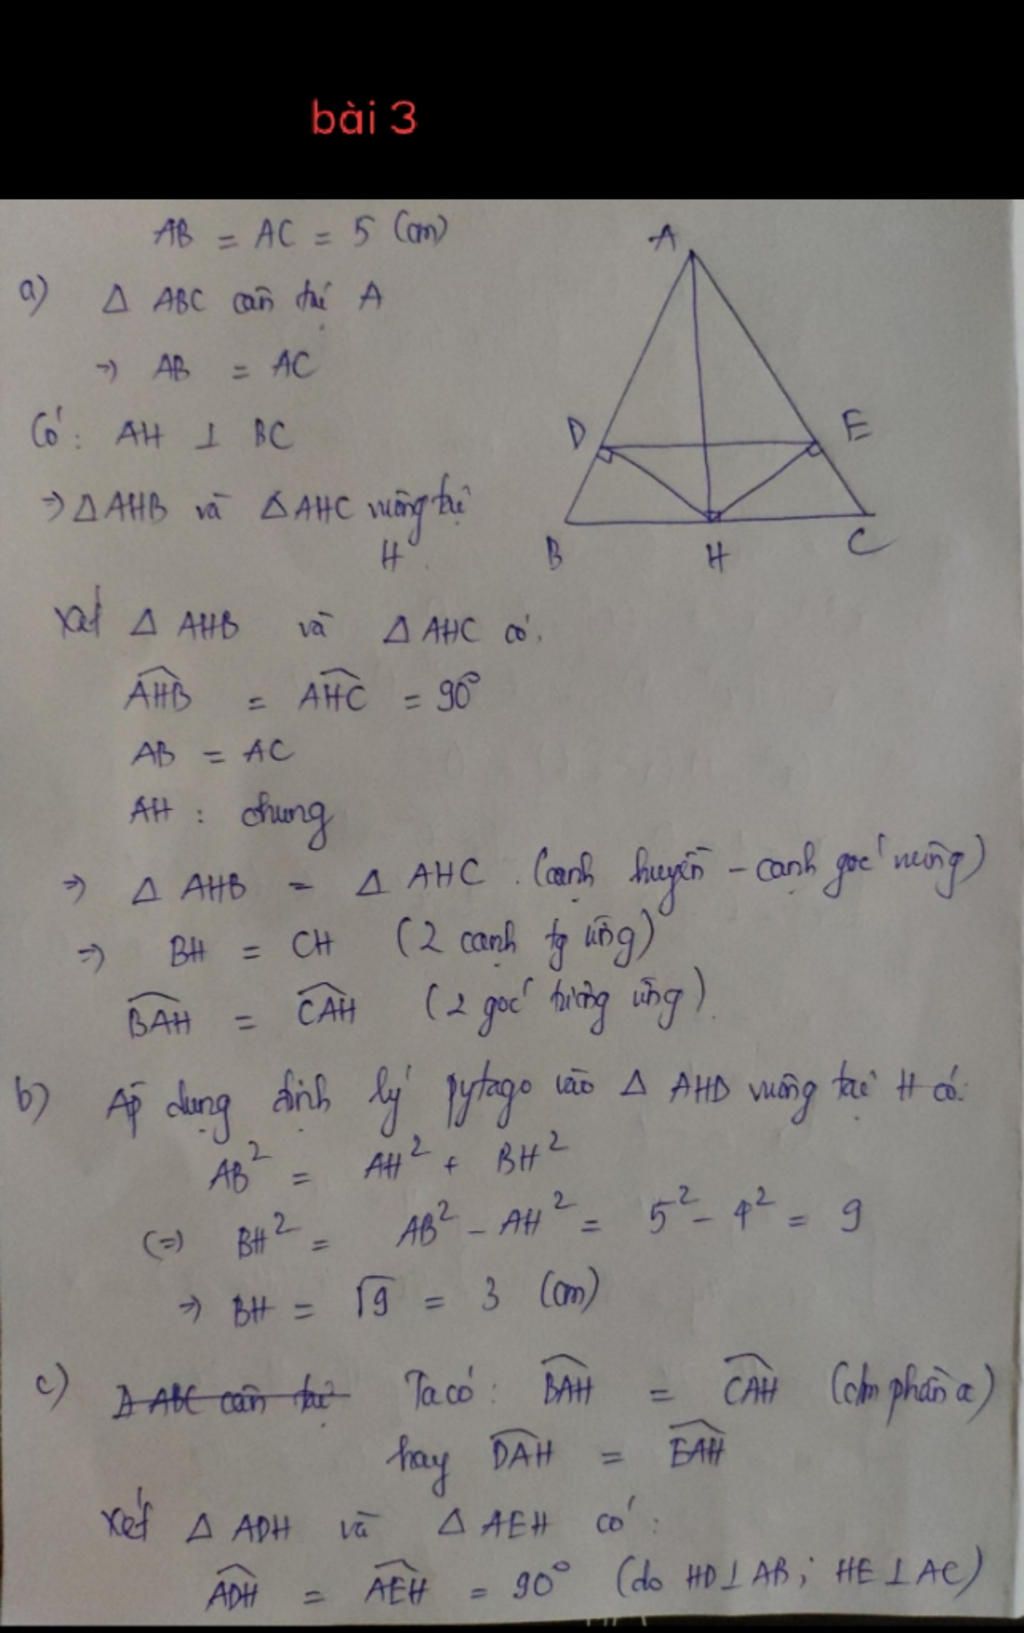 bài 3
AB = AC = 5 (cm)
A
a) Δ ABC cân tại A
⇒ AB = AC
Có: AH ⊥ BC
D E
⇒ Δ AHB và Δ AHC vuông tại
H
B H C
Xét Δ AHB và Δ AHC có.
AHB = AHC = 90°
AB = AC
AH : chung
⇒ Δ AHB = Δ AHC. (cạnh huyền - cạnh góc vuông)
⇒ BH = CH (2 cạnh tg ứng)
BAH = CAH (2 góc tương ứng).
b) Áp dụng định lý pytago vào Δ AHB vuông tại H có:
AB² = AH² + BH²
(=) BH² = AB² - AH² = 5² - 4² = 9
⇒ BH = √9 = 3 (cm)
c) Δ ABC cân tại Ta có: BAH = CAH (cm phần a)
hay DAH = EAH
Xét Δ ADH và Δ AEH có:
ADH = AEH = 90° (do HD⊥AB; HE⊥AC)